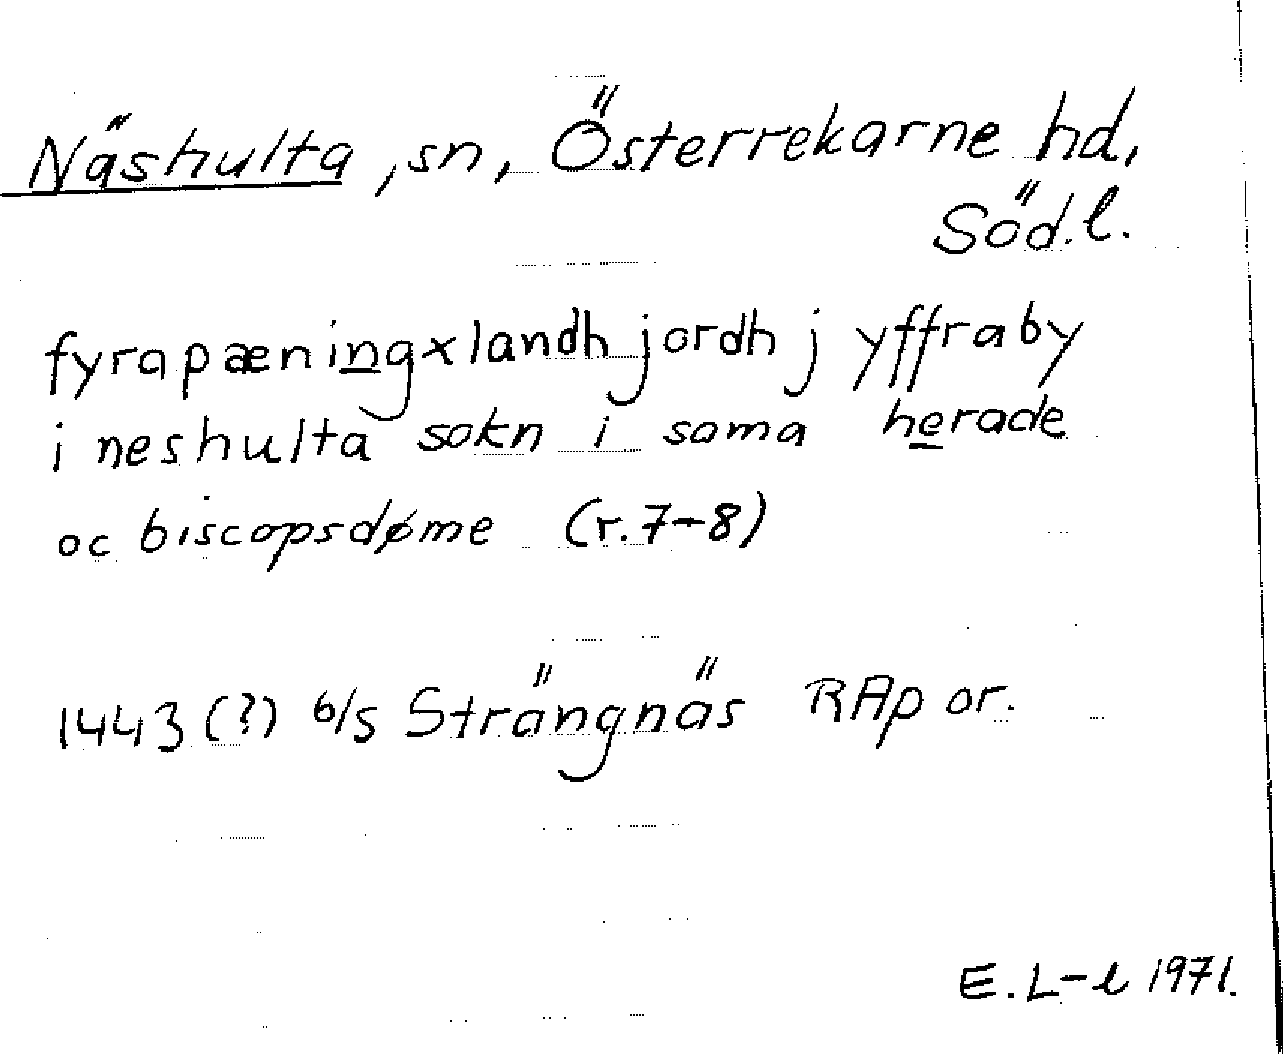 Näshulta, sn, Österrekarne hd,
Söd.l.
fyrapæningxlandh jordh j yffraby
i neshulta sokn i sama herade
oc biscopsdøme (r.7-8)
1443(?) 6/5 Strängnäs RAp or.
E.L-l 1971.